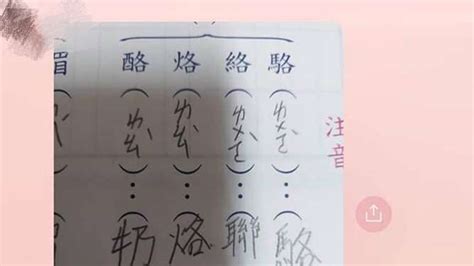 注音
駱(ㄌㄨㄛˋ):(駱
絡(ㄌㄨㄛˋ):(聯
烙(ㄌㄠˋ):(烙
酪(ㄌㄠˋ):(